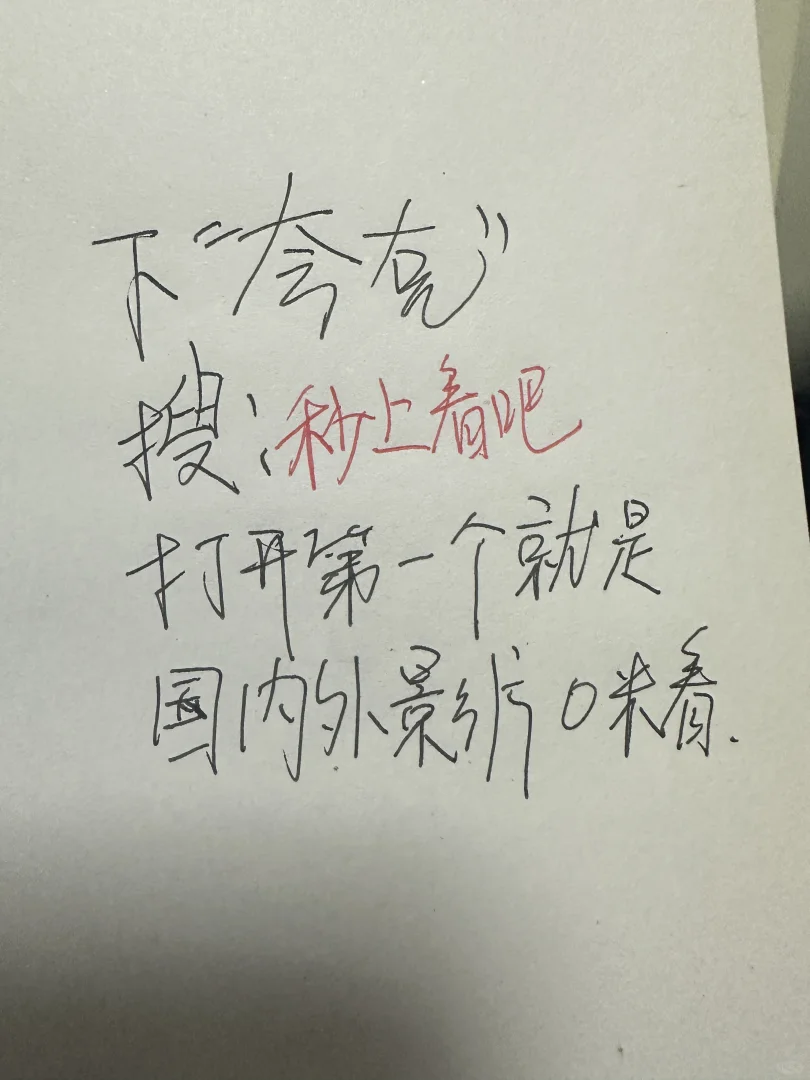 下“夸克”
搜:秒上看吧
打开第一个就是
国内外影片0米看.